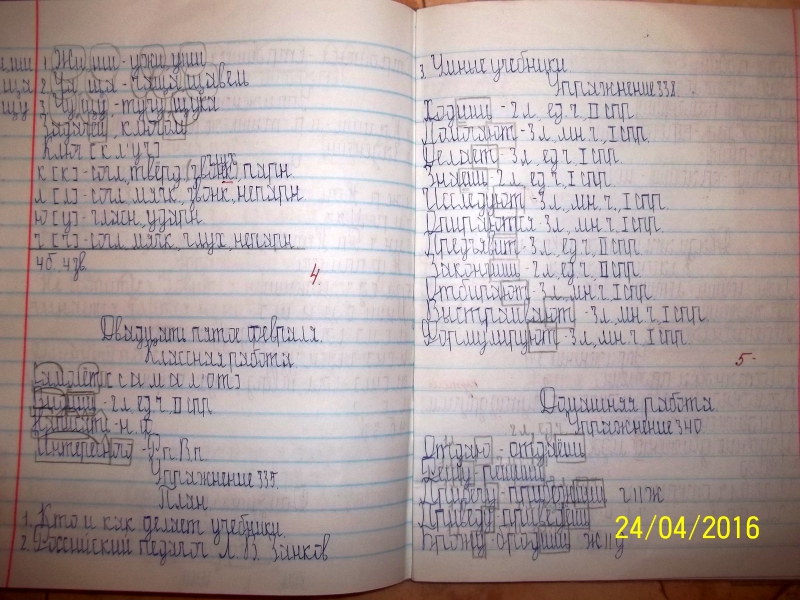 1. Жи ши - ужи уши
2. Ча ща - чаща щавель
3. Чу щу - щука
Задача, ключ
Ключ [к л' у ч']
к [к] - согл, твёрд, глух, парн.
л [л'] - согл, мягк, звонк, непарн
ю [у] - гласн, ударн
ч [ч'] - согл, мягк, глух, непарн
4б. 4зв.
4.
Двадцать пятое февраля.
Классная работа.
Самолёт [с а м а л' о т]
2 л. ед ч. II спр
н. ф.
Интересного - Р.п. В.п.
Упражнение 335.
План.
1. Кто и как делает учебники.
2. Российский педагог Л. В. Занков
3. Умные учебники
Упражнение 338.
Ходишь - 2 л, ед. ч, II спр.
3 л, мн. ч, I спр.
Делает - 3 л, ед ч. I спр.
Знаешь - 2 л, ед. ч, I спр.
Исследуют - 3 л, мн. ч, I спр.
Опираются - 3 л, мн. ч, I спр.
Предъявит - 3 л, ед ч, II спр.
Закончишь - 2 л, ед ч, II спр.
Отбирают - 3 л, мн. ч. I спр.
Выстраивают - 3 л, мн. ч I спр.
Формулируют - 3 л, мн. ч. I спр.
5-
Домашняя работа.
Упражнение 340.
2 л, ед. ч.
Отдаю - отдаёшь
24/04/2016